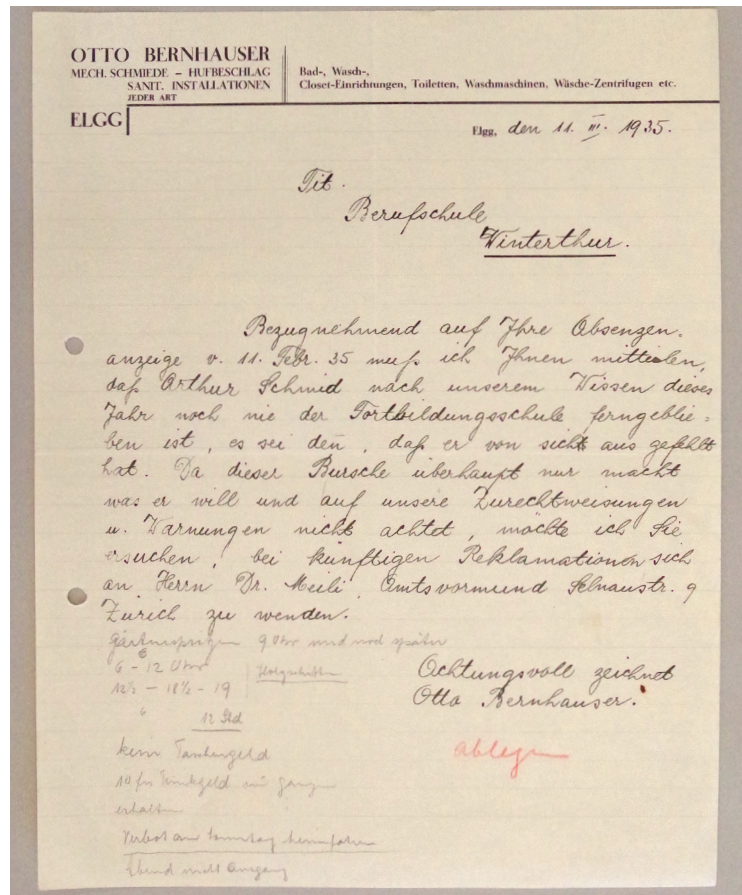 OTTO BERNHAUSER
MECH. SCHMIEDE – HUFBESCHLAG
SANIT. INSTALLATIONEN
JEDER ART
ELGG
Bad-, Wasch-,
Closet-Einrichtungen, Toiletten, Waschmaschinen, Wäsche-Zentrifugen etc.
Elgg, den 11. III. 1935.
Tit.
Berufschule
Winterthur.
Bezugnehmend auf Ihre Absenzen-
anzeige v. 11. Febr. 35 muß ich Ihnen mitteilen,
daß Arthur Schmid nach unserem Wissen dieses
Jahr noch nie der Fortbildungsschule ferngeblie=
ben ist, es sei den̄, daß er von sich aus gefehlt
hat. Da dieser Bursche überhaupt nur macht
was er will und auf unsere Zurechtweisungen
u. Warnungen nicht achtet, möchte ich Sie
ersuchen, bei künftigen Reklamationen sich
an Herrn Dr. Meili Amtsvormund Selnaustr. 9
Zürich zu wenden.
9 Uhr und noch später
6 – 12 Uhr
12½ – 18½ – 19
12 Std
kein Taschengeld
10 fr Trinkgeld
erhalten
Verbot am Sonntag heimfahren
Abend nicht Ausgang
Achtungsvoll zeichnet
Otto Bernhauser.
ablegen